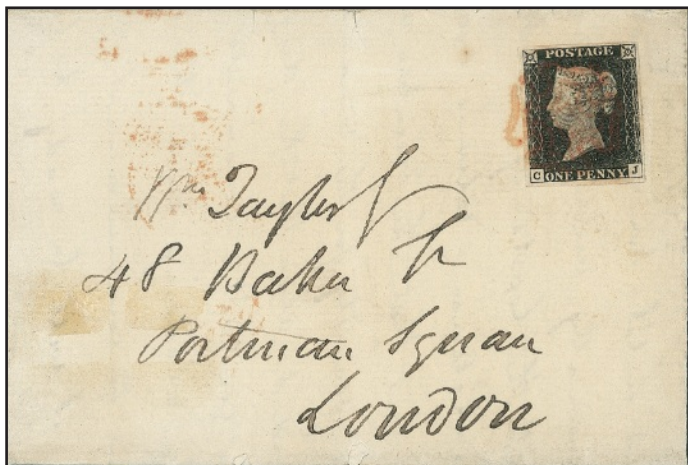 POSTAGE
C ONE PENNY J
Wm Tayler
48 Baker St
Portman Square
London